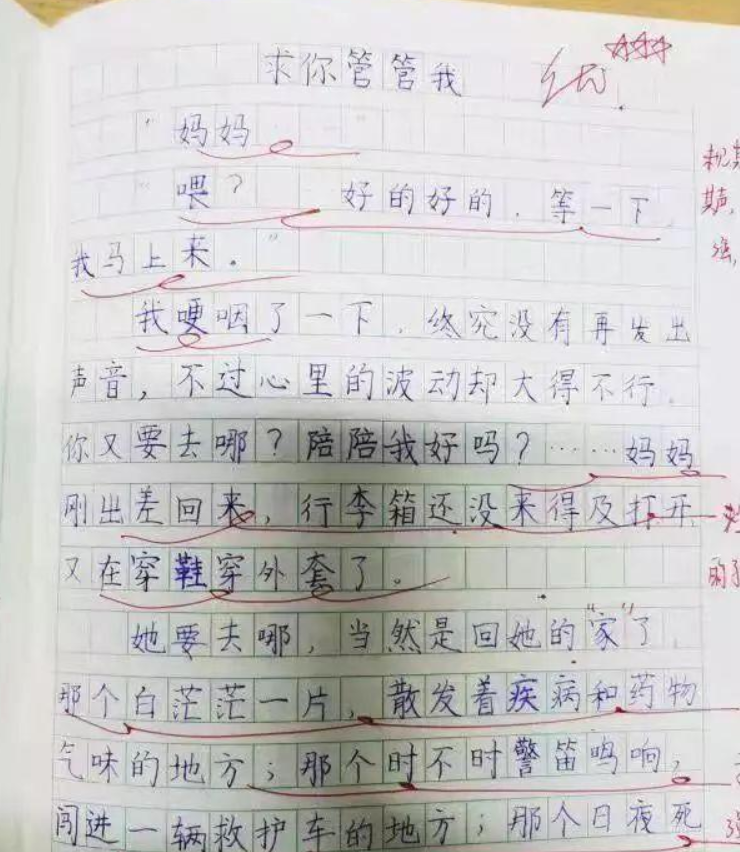 求你管管我
优
"妈妈 "
"喂? 好的好的,等一下,
我马上来。"
我哽咽了一下,终究没有再发出
声音,不过心里的波动却大得不行。
你又要去哪?陪陪我好吗?……妈妈
刚出差回来,行李箱还没来得及打开
又在穿鞋穿外套了。
她要去哪,当然是回她的"家"了,
那个白茫茫一片,散发着疾病和药物
气味的地方;那个时不时警笛鸣响,
闯进一辆救护车的地方;那个日夜死